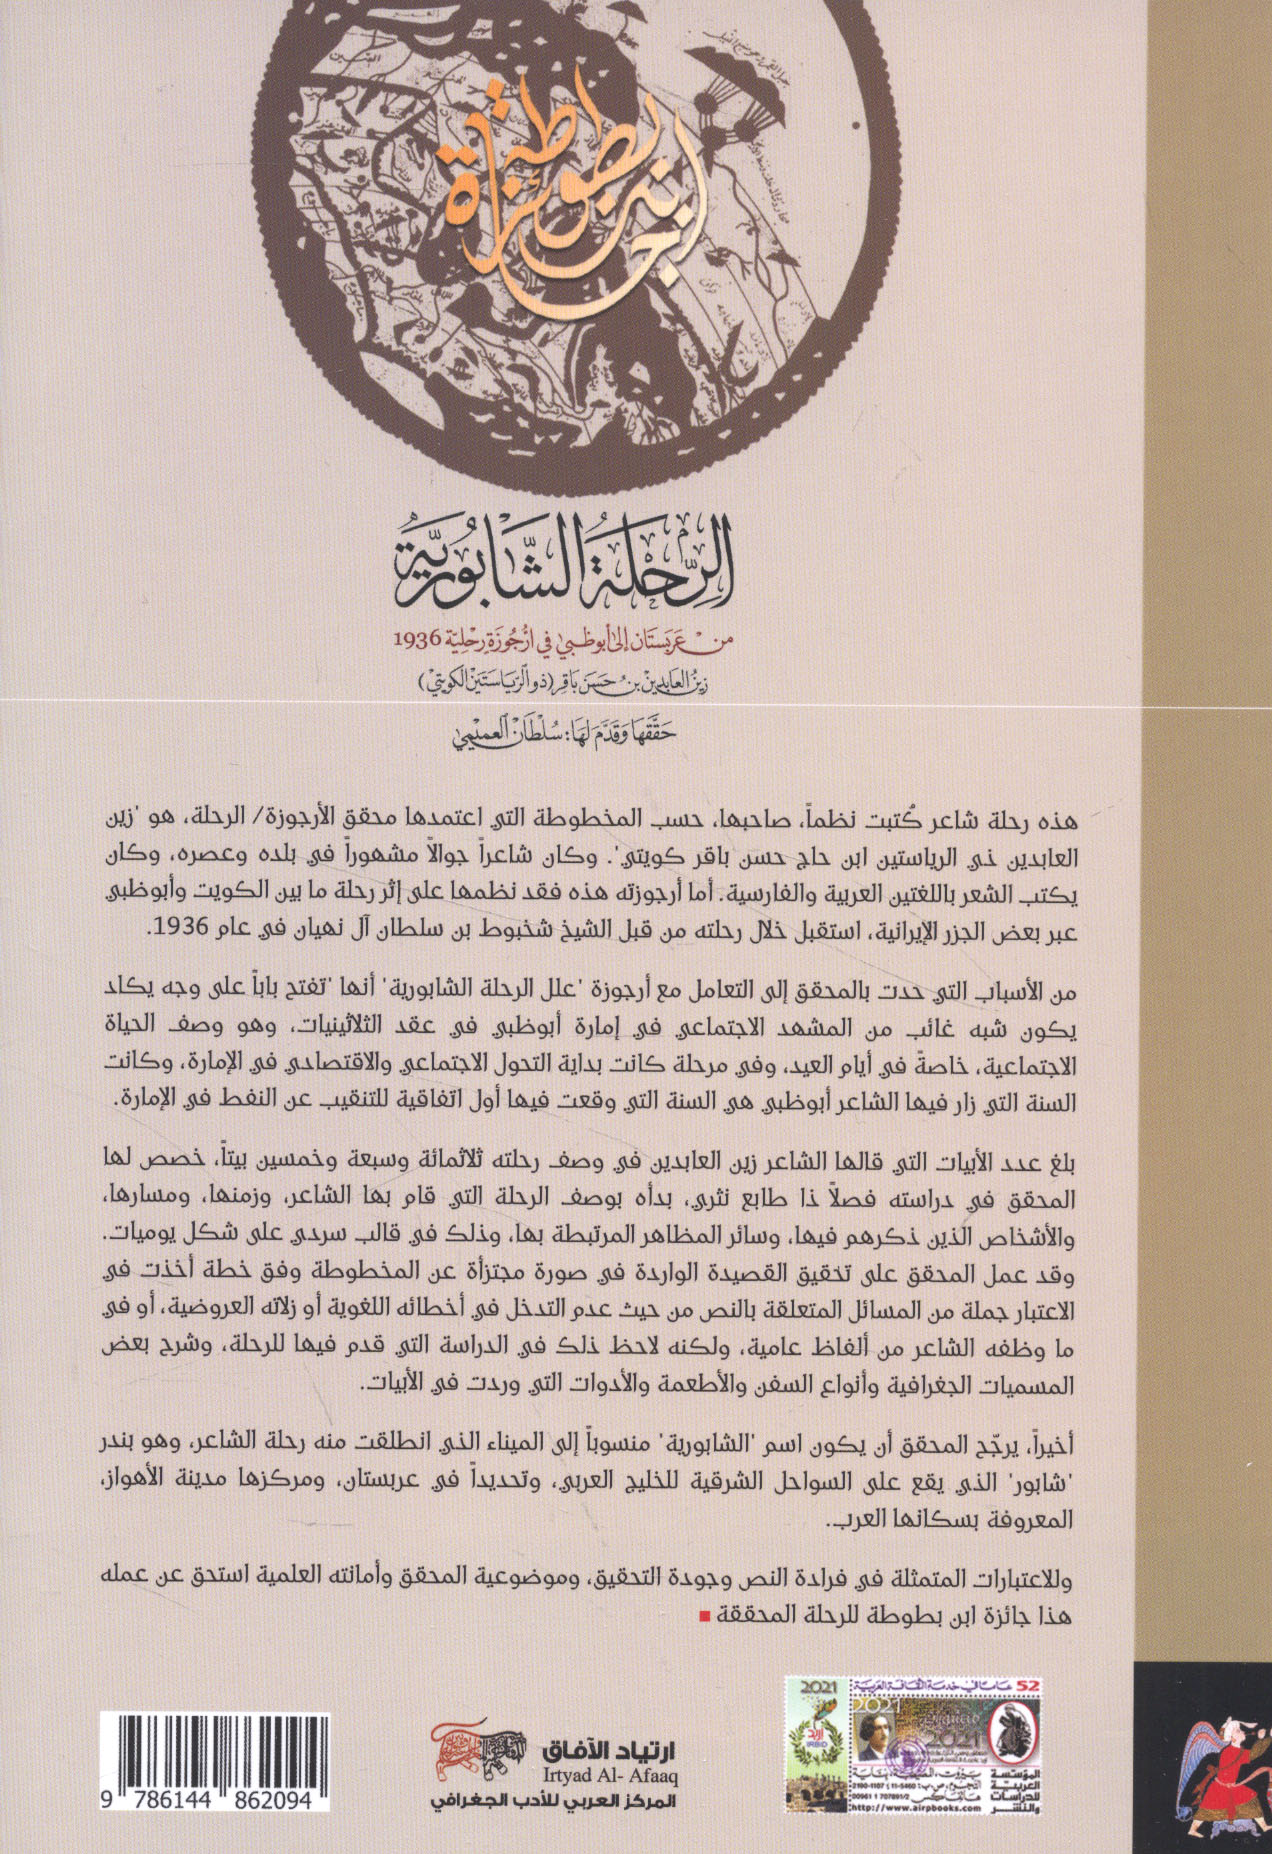 جائزة ابن بطوطة
الرِّحْلَةُ الشَّابُورِيَّةُ
من عَرَبَسْتَان إلى أبوظبي في أُرْجُوزَةٍ رِحْلِيَّة 1936
زينُ العابدين بن حَسَن بَاقِر (ذو الرِّيَاسَتَيْن الكويتيْ)
حَقَّقَهَا وَقَدَّمَ لَهَا: سُلْطَانْ العميْمي
هذه رحلة شاعر كُتبت نظماً، صاحبها، حسب المخطوطة التي اعتمدها محقق الأرجوزة/ الرحلة، هو "زين
العابدين ذي الرياستين ابن حاج حسن باقر كويتي". وكان شاعراً جوالاً مشهوراً في بلده وعصره، وكان
يكتب الشعر باللغتين العربية والفارسية. أما أرجوزته هذه فقد نظمها على إثر رحلة ما بين الكويت وأبوظبي
عبر بعض الجزر الإيرانية، استقبل خلال رحلته من قبل الشيخ شخبوط بن سلطان آل نهيان في عام 1936.
من الأسباب التي حدت بالمحقق إلى التعامل مع أرجوزة "علل الرحلة الشابورية" أنها "تفتح باباً على وجه يكاد
يكون شبه غائب من المشهد الاجتماعي في إمارة أبوظبي في عقد الثلاثينيات، وهو وصف الحياة
الاجتماعية، خاصةً في أيام العيد، وفي مرحلة كانت بداية التحول الاجتماعي والاقتصادي في الإمارة، وكانت
السنة التي زار فيها الشاعر أبوظبي هي السنة التي وقعت فيها أول اتفاقية للتنقيب عن النفط في الإمارة.
بلغ عدد الأبيات التي قالها الشاعر زين العابدين في وصف رحلته ثلاثمائة وسبعة وخمسين بيتاً، خصص لها
المحقق في دراسته فصلاً ذا طابع نثري، بدأه بوصف الرحلة التي قام بها الشاعر، وزمنها، ومسارها،
والأشخاص الذين ذكرهم فيها، وسائر المظاهر المرتبطة بها، وذلك في قالب سردي على شكل يوميات.
وقد عمل المحقق على تحقيق القصيدة الواردة في صورة مجتزأة عن المخطوطة وفق خطة أخذت في
الاعتبار جملة من المسائل المتعلقة بالنص من حيث عدم التدخل في أخطائه اللغوية أو زلاته العروضية، أو في
ما وظفه الشاعر من ألفاظ عامية، ولكنه لاحظ ذلك في الدراسة التي قدم فيها للرحلة، وشرح بعض
المسميات الجغرافية وأنواع السفن والأطعمة والأدوات التي وردت في الأبيات.
أخيراً، يرجّح المحقق أن يكون اسم "الشابورية" منسوباً إلى الميناء الذي انطلقت منه رحلة الشاعر، وهو بندر
"شابور" الذي يقع على السواحل الشرقية للخليج العربي، وتحديداً في عربستان، ومركزها مدينة الأهواز،
المعروفة بسكانها العرب.
وللاعتبارات المتمثلة في فرادة النص وجودة التحقيق، وموضوعية المحقق وأمانته العلمية استحق عن عمله
هذا جائزة ابن بطوطة للرحلة المحققة
9 786144 862094
ارتياد الآفاق
Irtyad Al- Afaaq
المركز العربي للأدب الجغرافي
52 عاماً في خدمة الثقافة العربية
2021
2021
2021
إربد
IRBID
المؤسسة
العربية
للدراسات
والنشر
بيروت، الصنايع، بناية
النجوم، ص.ب: 11-5460 / 2190-1107
هاتفاكس 00961 1 707891/2
http://www.airpbooks.com